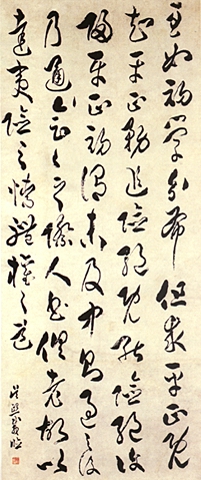 至如初學分布但求平正既
知平正務追險絕既能險絕復
歸平正初謂未及中則過之後
乃通會通會之際人書俱老故以
達夷險之情體權之
吳熙載臨